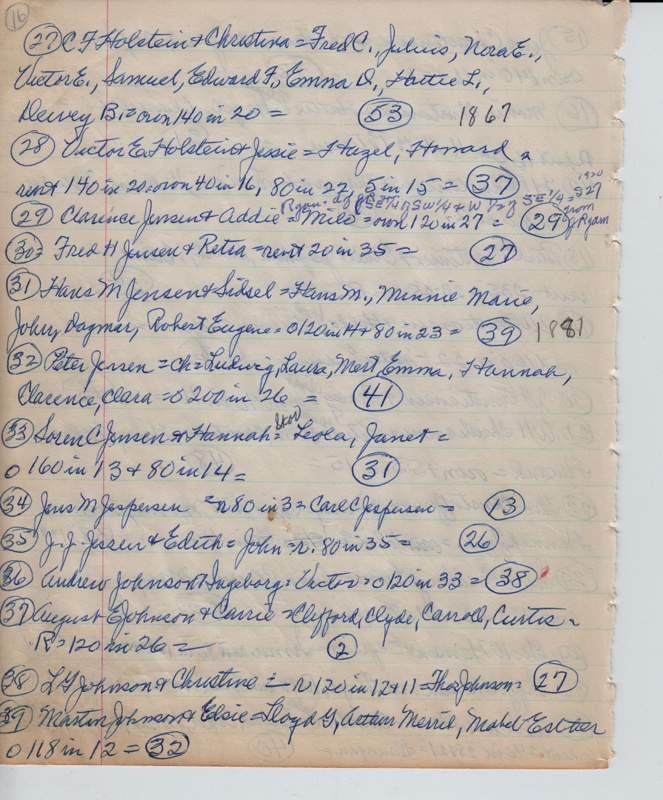 16
27 C F Holstein & Christina = Fred C., Juluis, Nora E.,
Victor E., Samuel, Edward F., Emma D., Hattie L.,
Dewey B. = own 140 in 20 = 53 1867
28 Victor E Holstein & Jessie = Hazel, Howard =
rent 140 in 20 = own 40 in 16, 80 in 22, 5 in 15 = 37
SE 1/4 of SW 1/4 & W 1/2 of SE 1/4 = S27
1920
29 Clarence Jensen & Addie = Milo = own 120 in 27 = 29 from J Ryan
30 = Fred H Jensen & Petra = rent 20 in 35 = 27
31 Hans M Jensen & Sidsel = Hans M., Minnie Marie,
John, Dagmar, Robert Eugene = 0 120 in 14 + 80 in 23 = 39 1881
32 Peter Jensen = ch = Ludwig, Laura, Mert Emma, Hannah,
Clarence, Clara = 0 200 in 26 = 41
33 Soren C Jensen & Hannah = Leola, Janet =
0 160 in 13 + 80 in 14 = 31
34 Jens M Jespersen = r 80 in 3 = Carl C Jespersen = 13
35 J. J. Jessen & Edith = John = r. 80 in 35 = 26
36 Andrew Johnson & Ingeborg = Victor = 0 120 in 33 = 38
37 August E Johnson & Carrie = Clifford, Clyde, Carroll, Curtis =
R = 120 in 26 = 2
38 L G Johnson & Christine = r 120 in 12 + 11 = Thos Johnson = 27
39 Martin Johnson & Elsie = Lloyd G, Arthur Merril, Mabel Esther
0 118 in 12 = 32